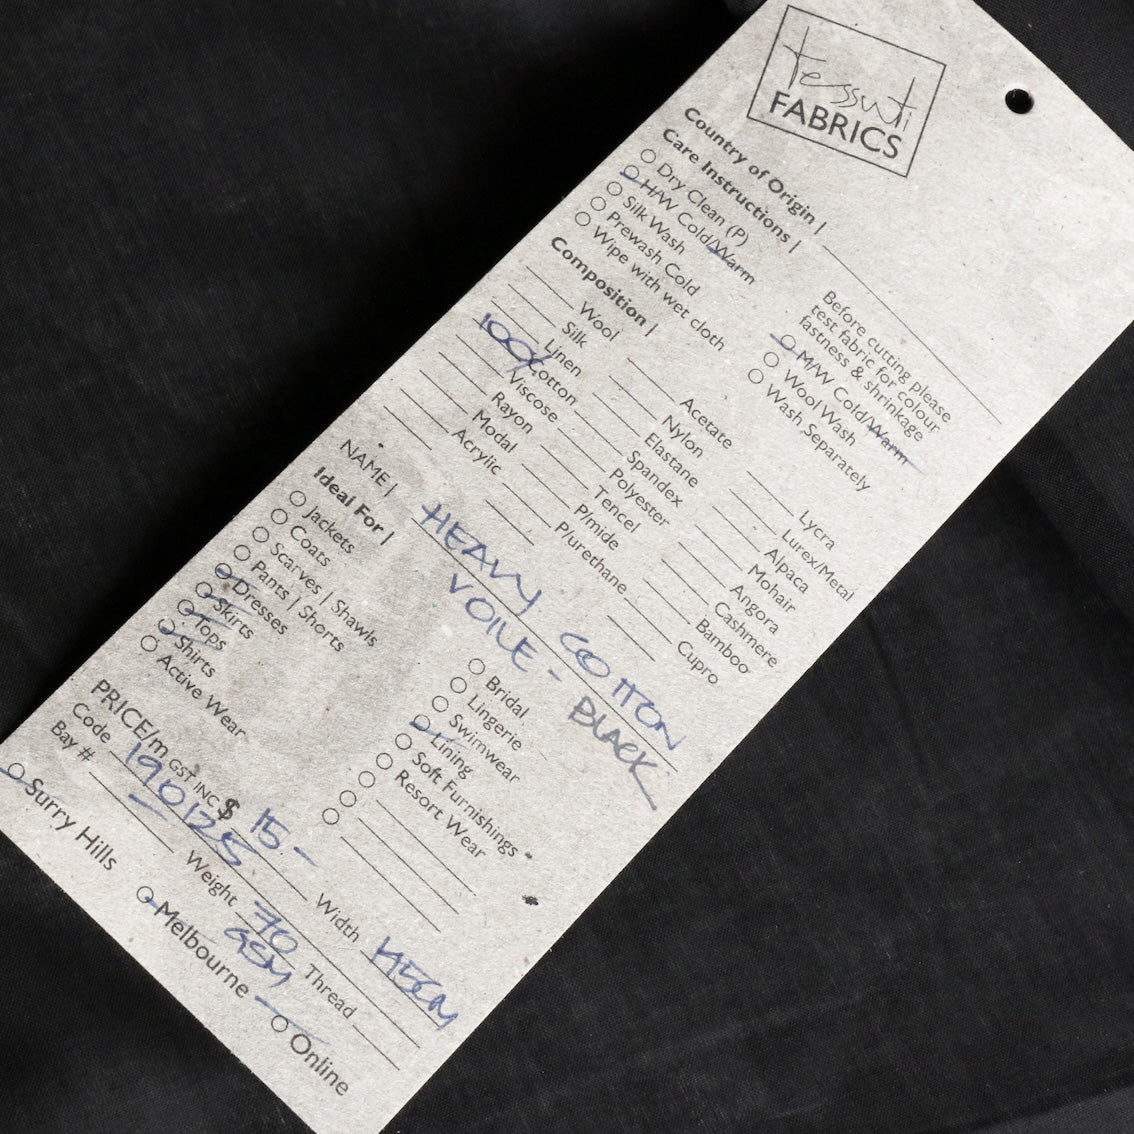 tessuti
FABRICS
Country of Origin |
Care Instructions |
Dry Clean (P)
H/W Cold/Warm
Silk Wash
Prewash Cold
Wipe with wet cloth
Before cutting please
test fabric for colour
fastness & shrinkage
M/W Cold/Warm
Wool Wash
Wash Separately
Composition |
Wool
Silk
Linen
100% Cotton
Viscose
Rayon
Modal
Acrylic
Acetate
Nylon
Elastane
Spandex
Polyester
Tencel
P/mide
P/urethane
Lycra
Lurex/Metal
Alpaca
Mohair
Angora
Cashmere
Bamboo
Cupro
NAME | HEAVY COTTON
VOILE - BLACK
Ideal For |
Jackets
Coats
Scarves | Shawls
Pants | Shorts
Dresses
Skirts
Tops
Shirts
Active Wear
Bridal
Lingerie
Swimwear
Lining
Soft Furnishings
Resort Wear
PRICE/m GST INC $ 15 -
Code 190125
Width 145CM
Bay #
Weight 70 GSM
Thread
Surry Hills
Melbourne
Online